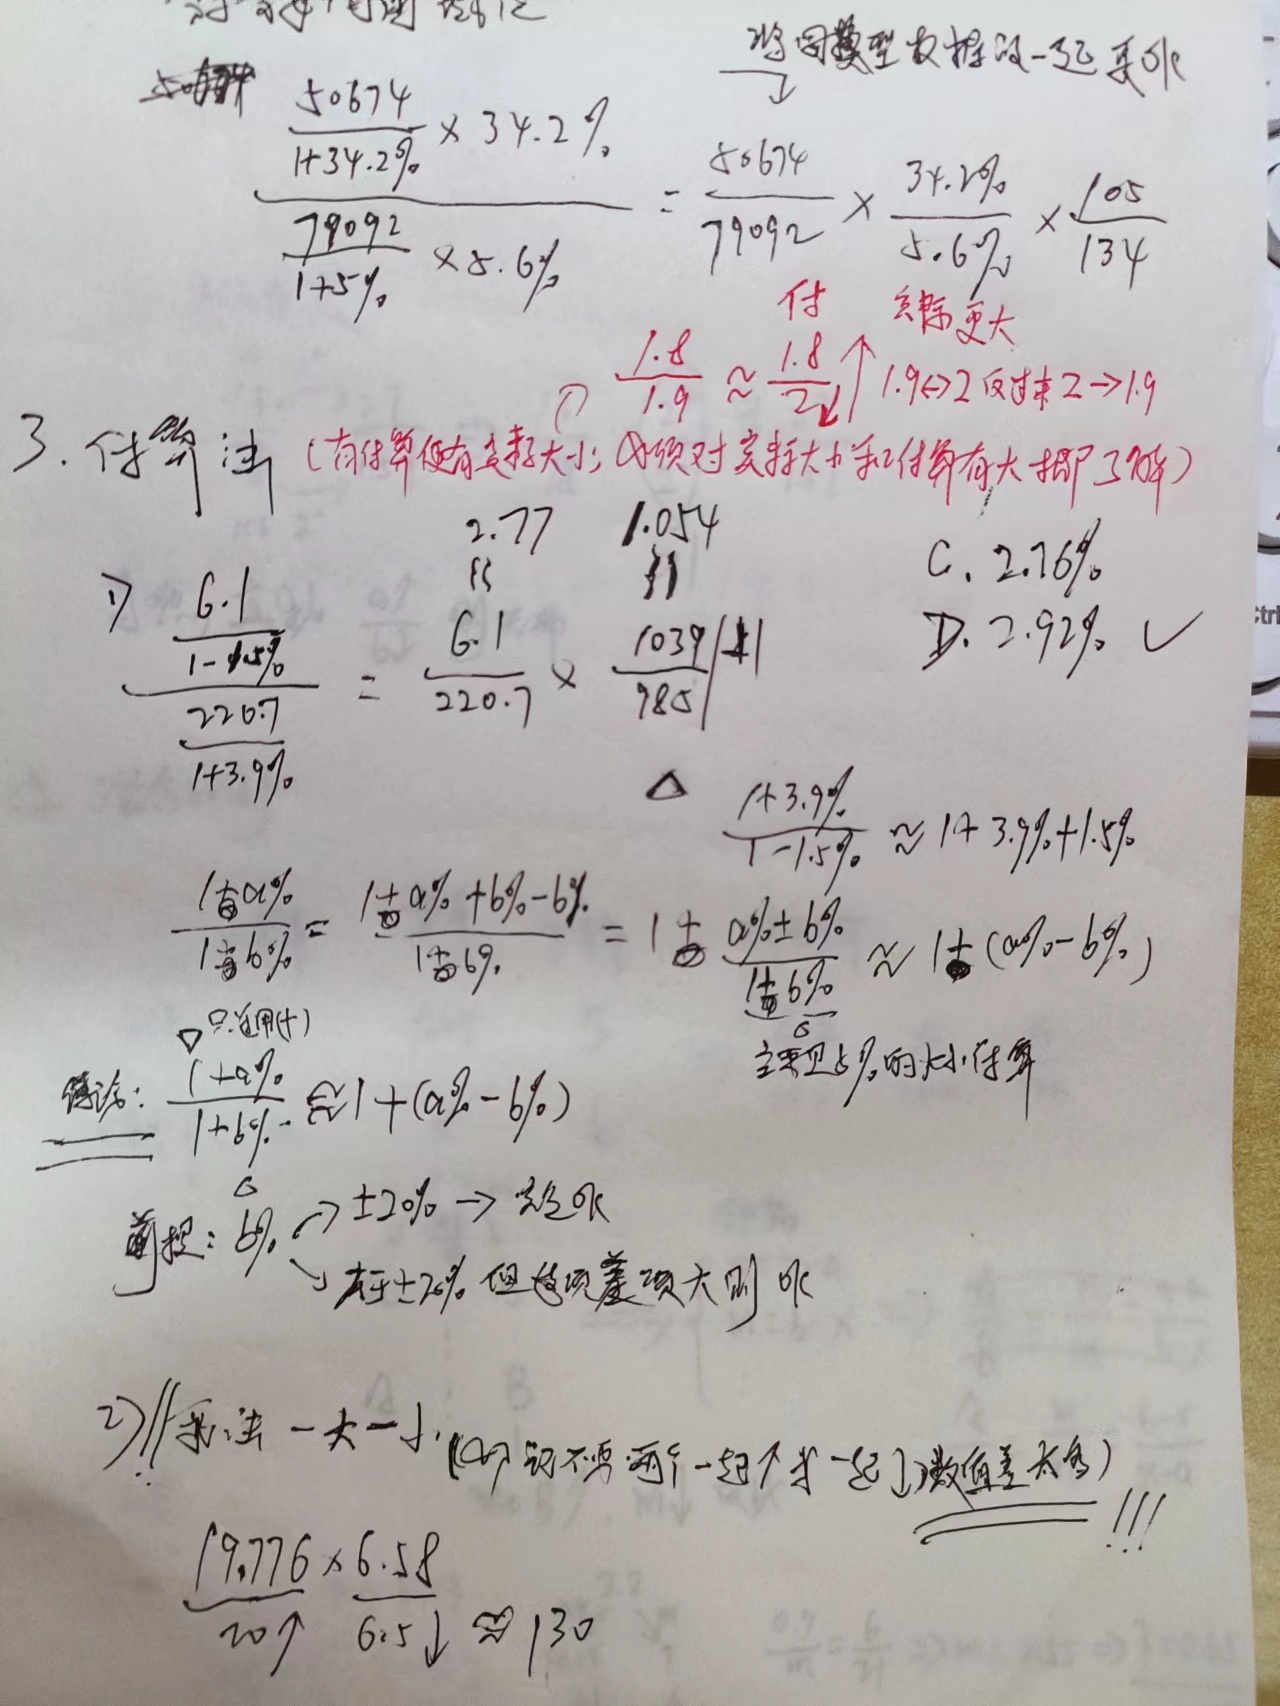 将同模型数据放一起更ok
50674/(1+34.2%) × 34.2% / 79092/(1+5%) × 5.6% = 50674/79092 × 34.2%/5.6% × 105/134
估 实际更大
1.8/1.9 ≈ 1.8/2↓ ↑ 1.9↔2 反过来2→1.9
3. 估算法 (有估算便有实际大小; 必须对实际大小和估算有大概了解)
2.77 1.054
C. 2.76%
1) 6.1/(1-1.5%) / 220.7/(1+3.9%) = 6.1/220.7 × 1039/985
D. 2.92% ✓
△ (1+3.9%)/(1-1.5%) ≈ 1+3.9%+1.5%
(1±a%)/(1±b%) = (1±a%+b%-b%)/(1±b%) = 1± (a%±b%)/(1±b%) ≈ 1±(a%-b%)
▽只适用(+)
主要见b%的大小估算
结论: (1+a%)/(1+b%) ≈ 1+(a%-b%)
前提: b% → ±20% → 完全ok
↘ 大于±20% 但选项差项大则 ok
2) 乘法 一大一小 (切记不要两个一起↑或一起↓数值差太多) !!!
19.776 × 6.58
20↑ 6.5↓ ≈ 130